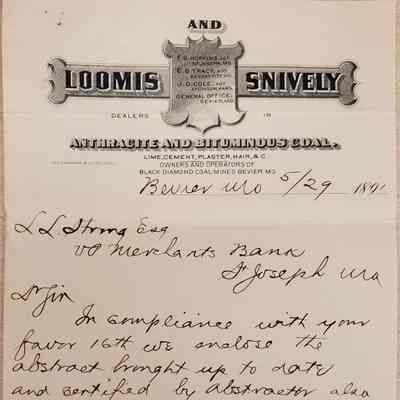 AND
LOOMIS SNIVELY
F.G. HOPKINS, AGT.
ST. JOSEPH, MO.
E.B. TRACY, AGT.
J.D. COLE, AGT.
ATCHISON, KANS.
GENERAL OFFICE,
BEVIER, MO.
DEALERS IN
ANTHRACITE AND BITUMINOUS COAL,
LIME, CEMENT, PLASTER, HAIR, & C.
OWNERS AND OPERATORS OF
BLACK DIAMOND COAL MINES BEVIER MO.
Bevier Mo 5/29 1891
L L Strong Esq
VP Merchants Bank
St Joseph Mo
Dr Sir
In compliance with your
favor 16th we enclose the
abstract brought up to date
and certified by abstractor also